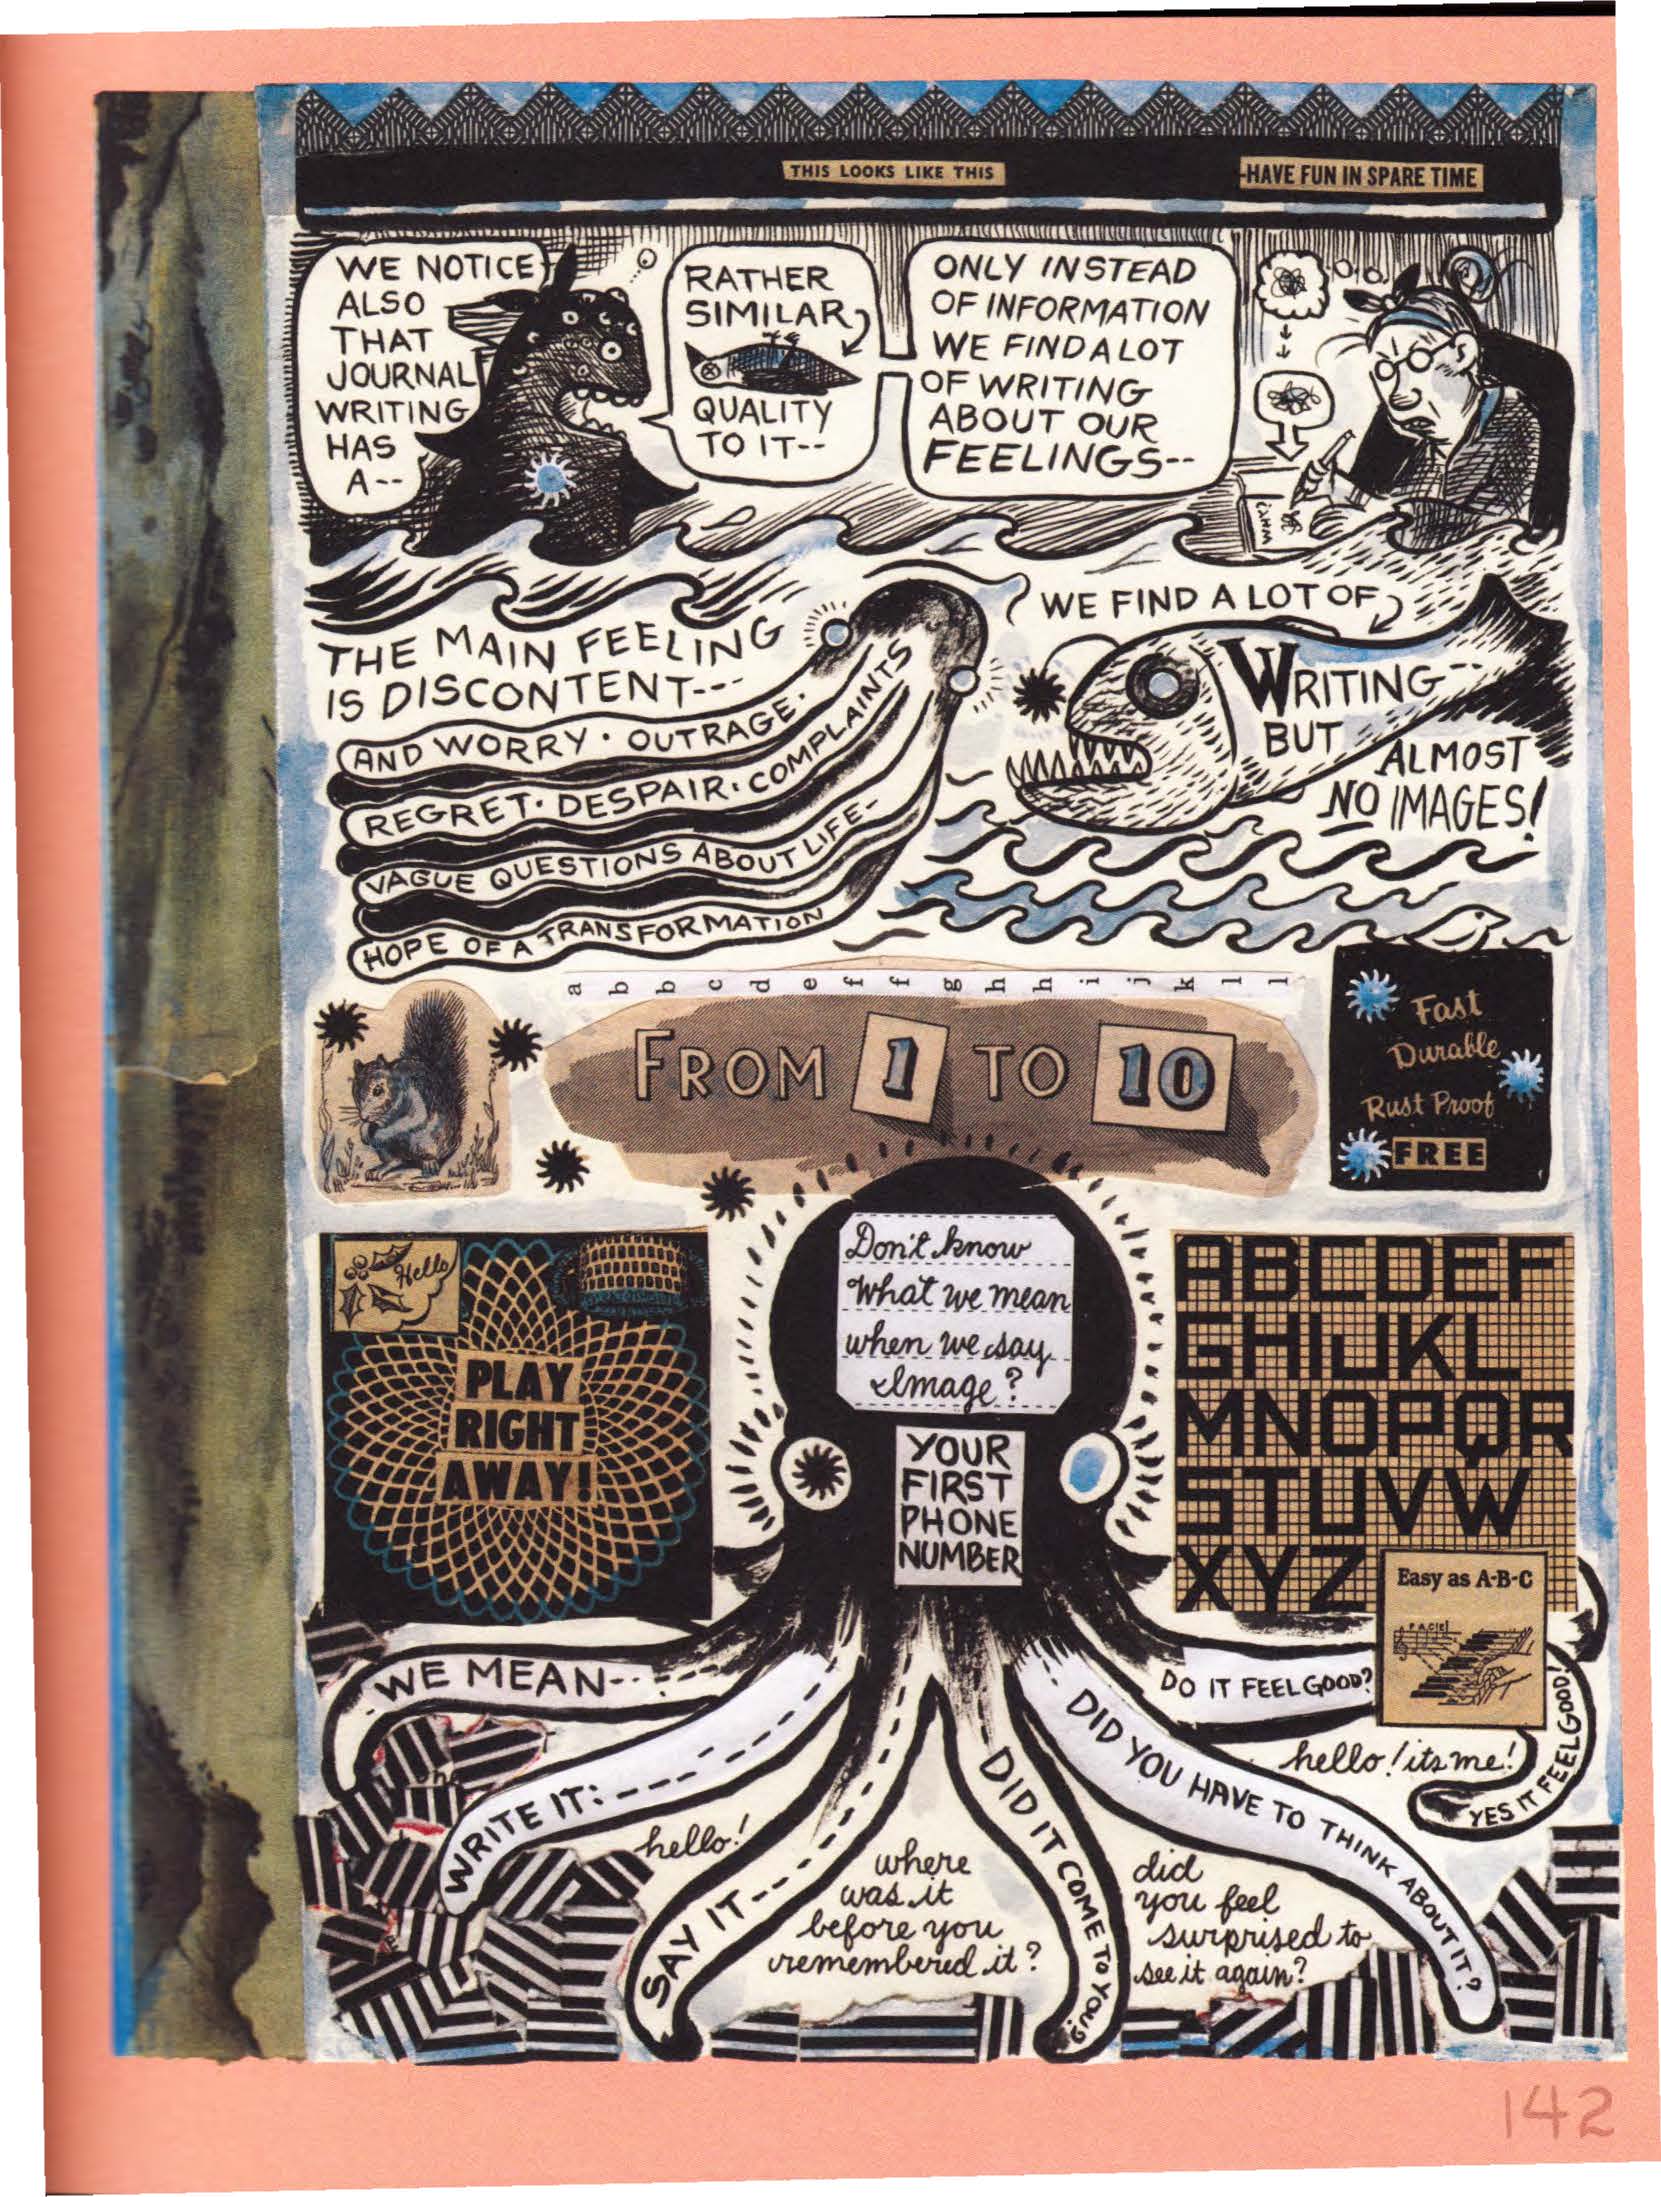 THIS LOOKS LIKE THIS
-HAVE FUN IN SPARE TIME
WE NOTICE
ALSO
THAT
JOURNAL
WRITING
HAS
A--
RATHER
SIMILAR
QUALITY
TO IT--
ONLY INSTEAD
OF INFORMATION
WE FIND A LOT
OF WRITING
ABOUT OUR
FEELINGS--
THE MAIN FEELING
IS DISCONTENT---
AND WORRY · OUTRAGE ·
REGRET · DESPAIR · COMPLAINTS
VAGUE QUESTIONS ABOUT LIFE-
HOPE OF A TRANSFORMATION
WE FIND A LOT OF
WRITING--
BUT
ALMOST
NO IMAGES!
a b b c d e f f g h h i j k l l
FROM 1 TO 10
Fast
Durable
Rust Proof
FREE
Hello
PLAY
RIGHT
AWAY!
Don't know
What we mean
when we say
Image?
YOUR
FIRST
PHONE
NUMBER
ABCDEF
GHIJKL
MNOPQR
STUVW
XYZ
Easy as A-B-C
F A C E
WE MEAN--
WRITE IT:
SAY IT--
hello!
where
was it
before you
remembered it?
DID IT COME TO YOU?
did
you feel
surprised to
see it again?
DID YOU HAVE TO THINK ABOUT IT?
DO IT FEEL GOOD?
hello! its me!
YES IT FEEL GOOD!
142